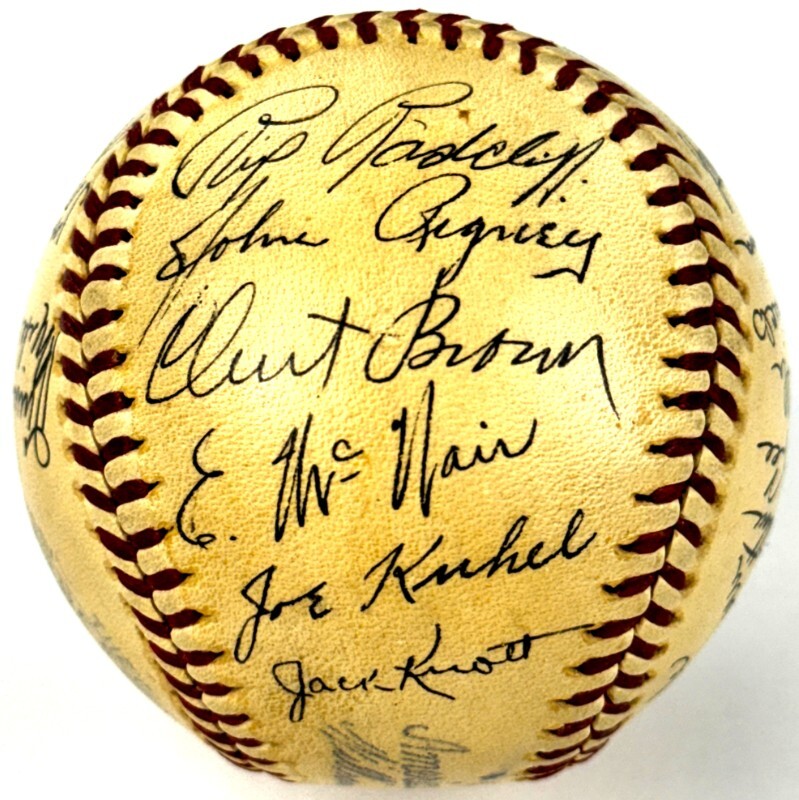 Rip Radcliff
John Rigney
Clint Brown
E. McNair
Joe Kuhel
Jack Knott